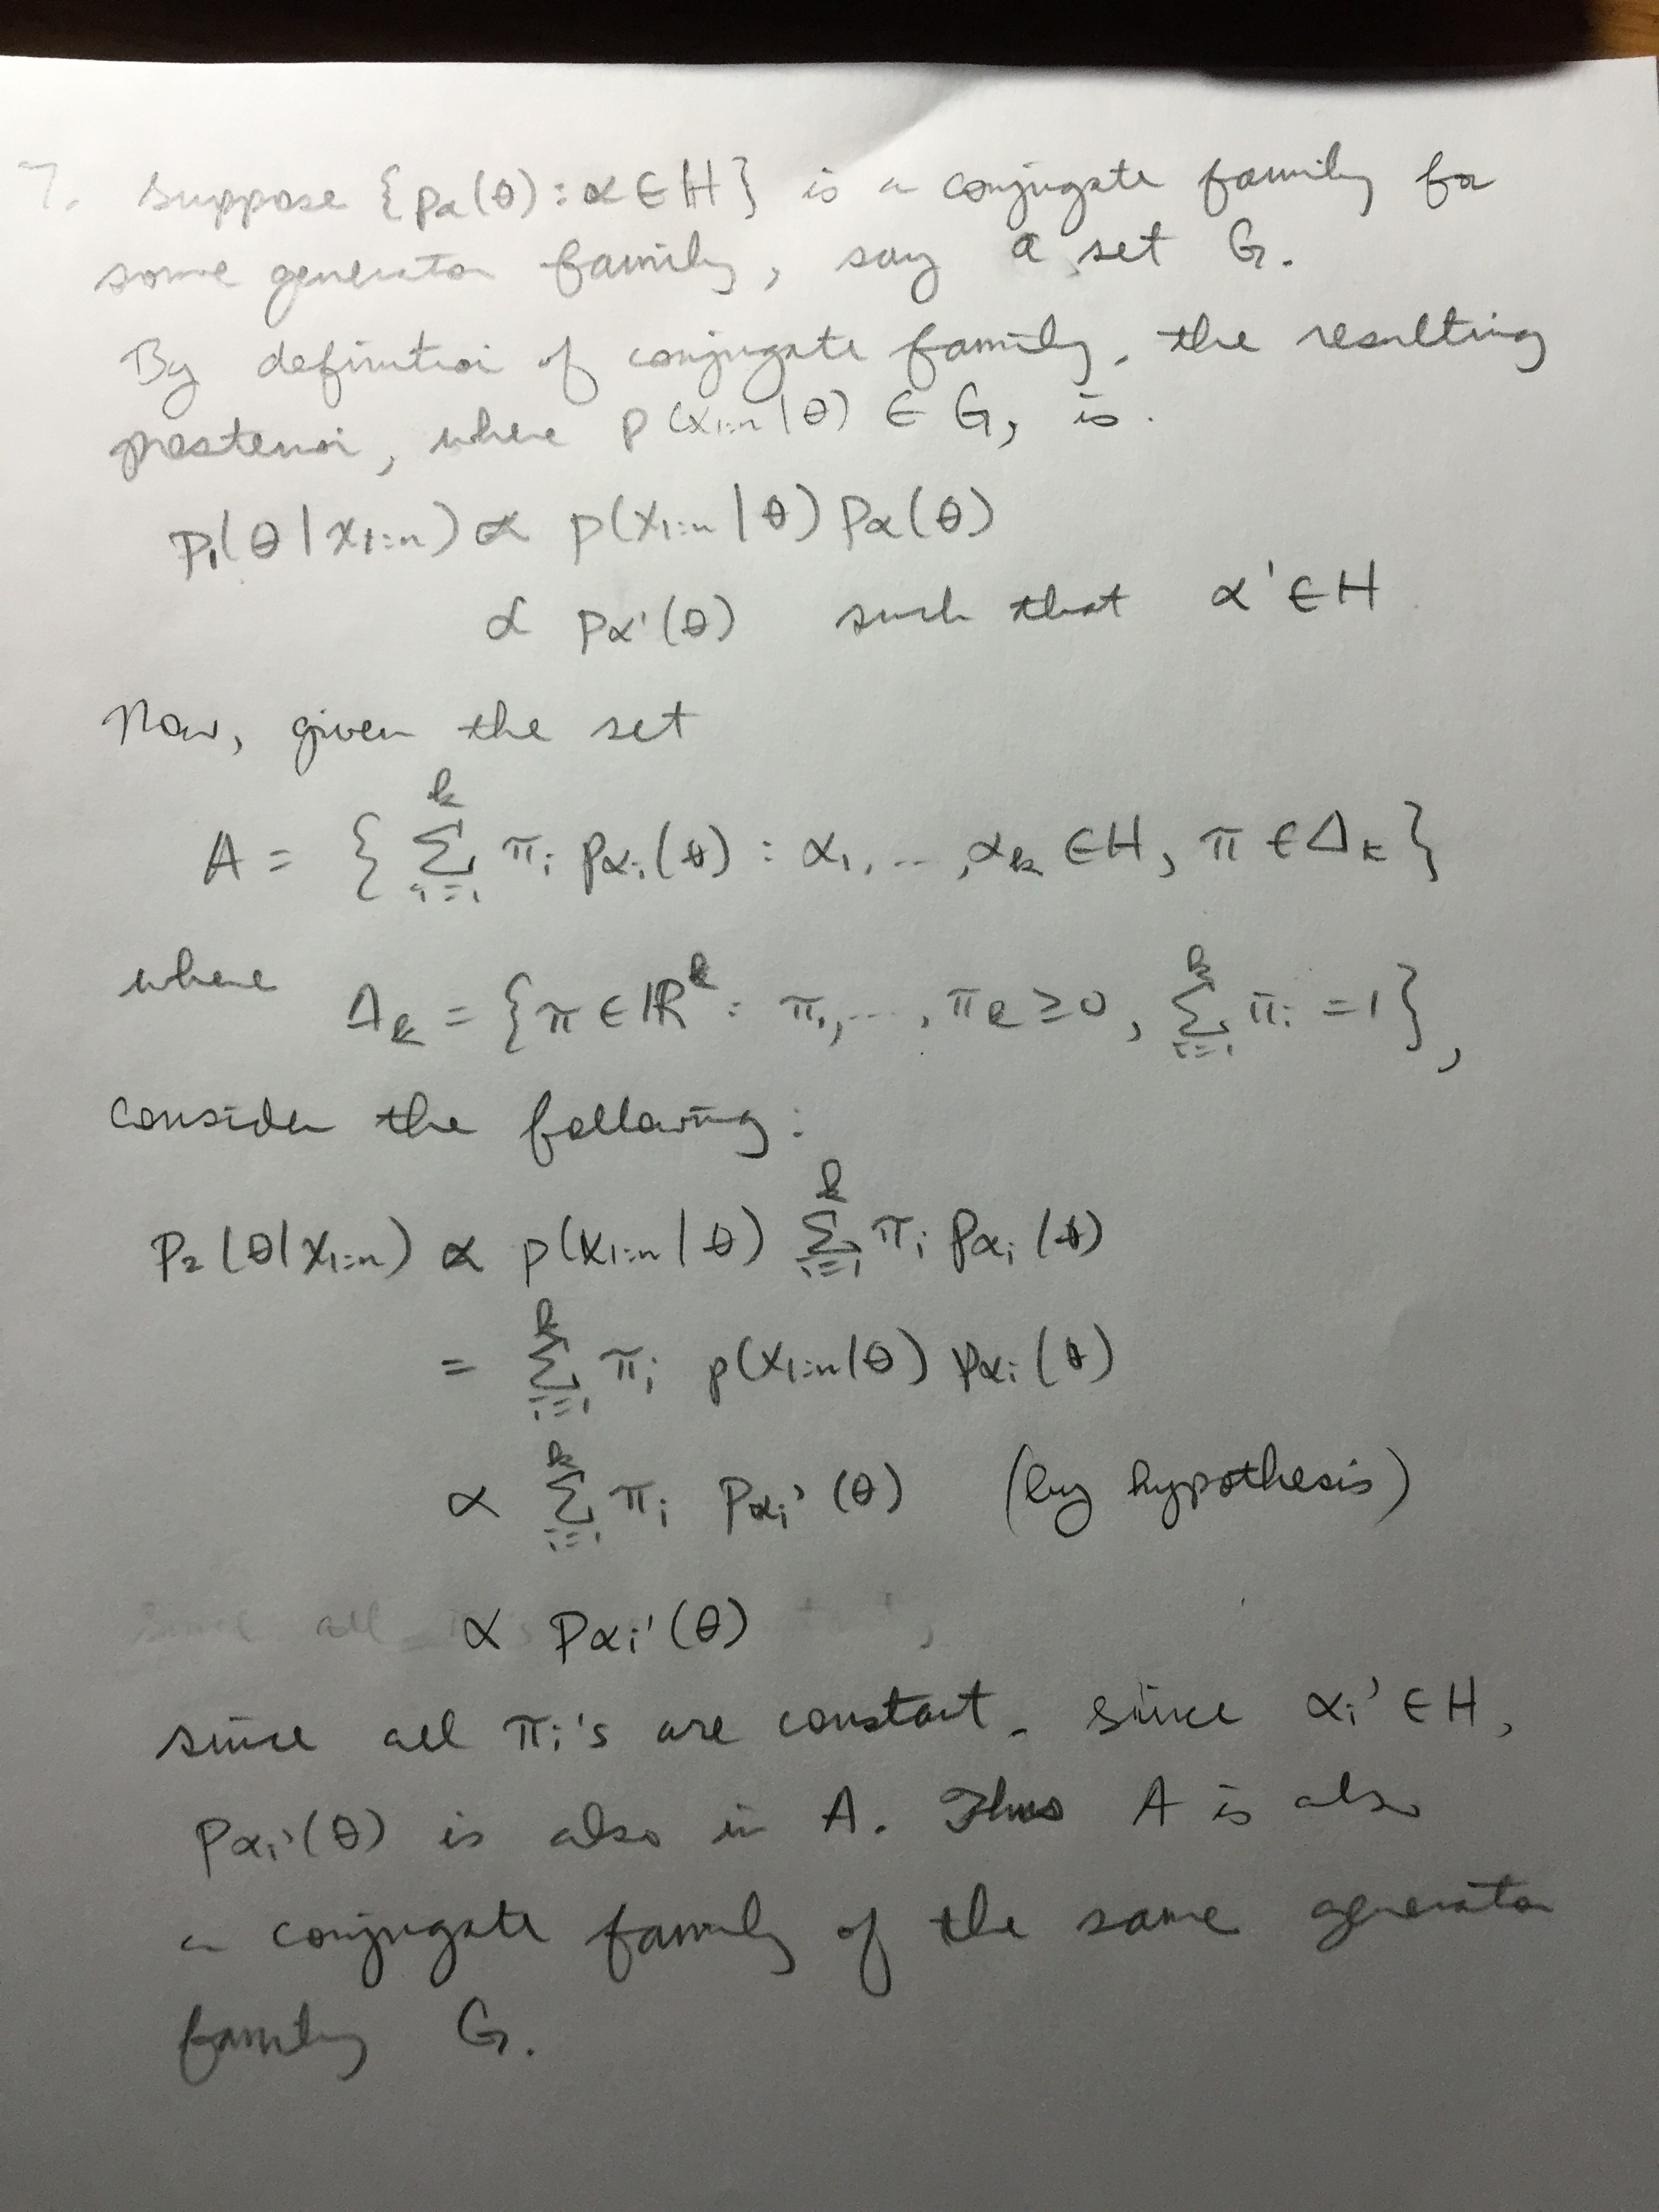 7. Suppose {pα(θ) : α ∈ H} is a conjugate family for
some generator family, say a set G.
By definition of conjugate family, the resulting
posterior, where p(x₁:ₙ|θ) ∈ G, is.
p₁(θ|x₁:ₙ) ∝ p(x₁:ₙ|θ) pα(θ)
∝ pα'(θ) such that α' ∈ H
Now, given the set
A = { ∑ᵢ₌₁ᵏ πᵢ pαᵢ(θ) : α₁, ..., αk ∈ H, π ∈ Δk }
where Δk = { π ∈ ℝᵏ : π₁, ..., πk ≥ 0, ∑ᵢ₌₁ᵏ πᵢ = 1 },
consider the following:
p₂(θ|x₁:ₙ) ∝ p(x₁:ₙ|θ) ∑ᵢ₌₁ᵏ πᵢ pαᵢ(θ)
= ∑ᵢ₌₁ᵏ πᵢ p(x₁:ₙ|θ) pαᵢ(θ)
∝ ∑ᵢ₌₁ᵏ πᵢ pαᵢ'(θ) (by hypothesis)
∝ pαᵢ'(θ)
since all πᵢ's are constant. Since αᵢ' ∈ H,
pαᵢ'(θ) is also in A. Thus A is also
a conjugate family of the same generator
family G.